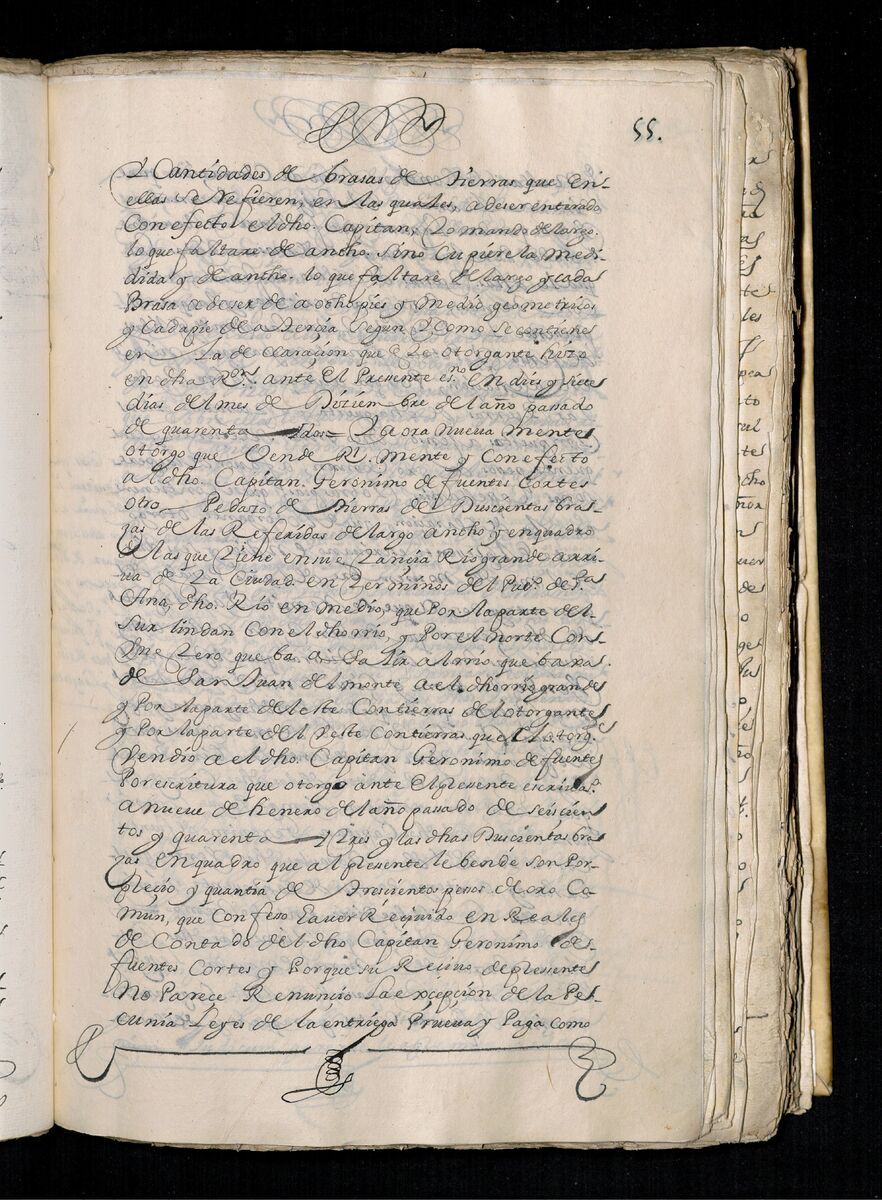 55.
Y Cantidades de brasas de tierras que En-
ellas se Refieren, en las quales, a de ser entirado
Con efecto el dho. Capitan, tomando de largo.
lo que faltare de ancho. sino Cupiere la medi-
dida y de ancho. lo que faltare de largo y cada
Brasa a de ser de a ocho pies y medio geometricos
y Cada pie de a tercia Segun Y Como se contiene
en la declaraçion que este otorgante hizo
en dha Ron. ante El Presente esno. En dies y siete
dias del mes de Diziembre del año passado
de quarenta y dos = Y aora nueva mente
otorgo que Vende Rl. mente y Con efecto
al dho. Capitan. Geronimo de fuentes Cortes
otro Pedazo de tierras de Duscientas bra-
zas de las Referidas de largo ancho y en quadro
de las que tiene en su estançia Rio grande arri-
va de La Ciudad en terminos del Pueo. de Sta
Ana, dho. Rio en medio, que Por la parte del
Sur lindan Con el dho rrio, y Por el norte Con
estero que ba a Salir al rrio que baxa.
de San Juan del monte a el dho rrio grande
y Por la parte del este Con tierras del otorgante
y Por la parte del Veste Con tierras que el otorge
Vendio a el dho. Capitan Geronimo de fuentes
Por escritura que otorgo ante El presente escrivao
a nueve de henero del año passado de seiscien
tos y quarenta y tres y las dhas Duscientas bra
zas En quadro que al presente le bende son Por
precio y quantia de Trescientos pesos de oro Co-
mun, que Confeso haver Reçiuido en Reales
de Contado del dho Capitan Geronimo de-
fuentes Cortes y Porque su Reciuo de pressente
No Parece Renuncio La exçepçion de la Pe-
cunia Leyes de la entrega Prueva y Paga como